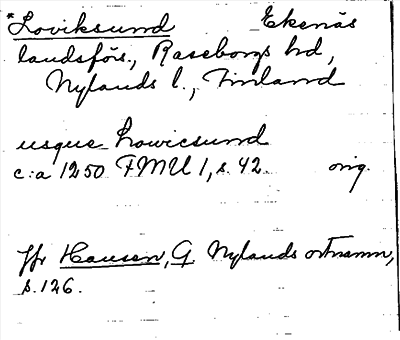 *Loviksund Ekenäs
landsförs., Raseborgs hd,
Nylands l., Finland
usque Lowicsund
c:a 1250 FMU 1, s. 42. orig.
Jfr Hausen, G. Nylands ortnamn,
s. 126.